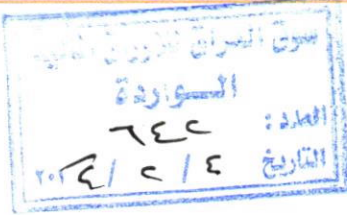 سوق العراق للاوراق المالية
الـــواردة
العدد : ٦٤٢
التاريخ ٤ / ٢ / ٢٠٢٤